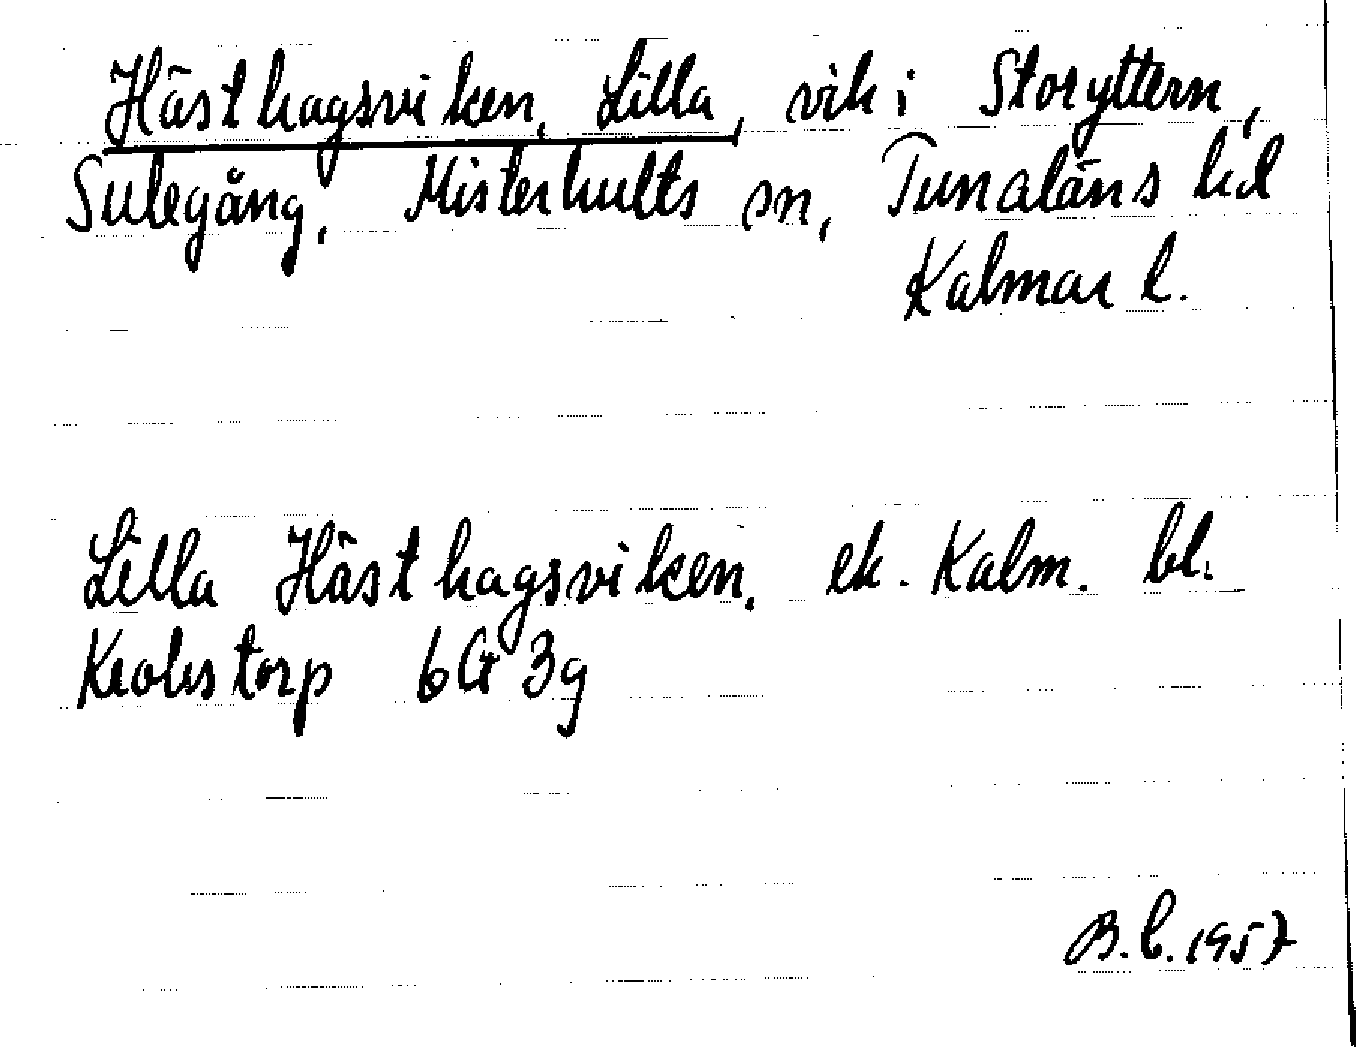 Hästhagsviken, Lilla, vik i Storyttern,
Sulegång, Misterhults sn, Tunaläns hd
Kalmar l.
Lilla Hästhagsviken, ek. Kalm. bl.
Krokstorp 6G 3g
B.L. 1957